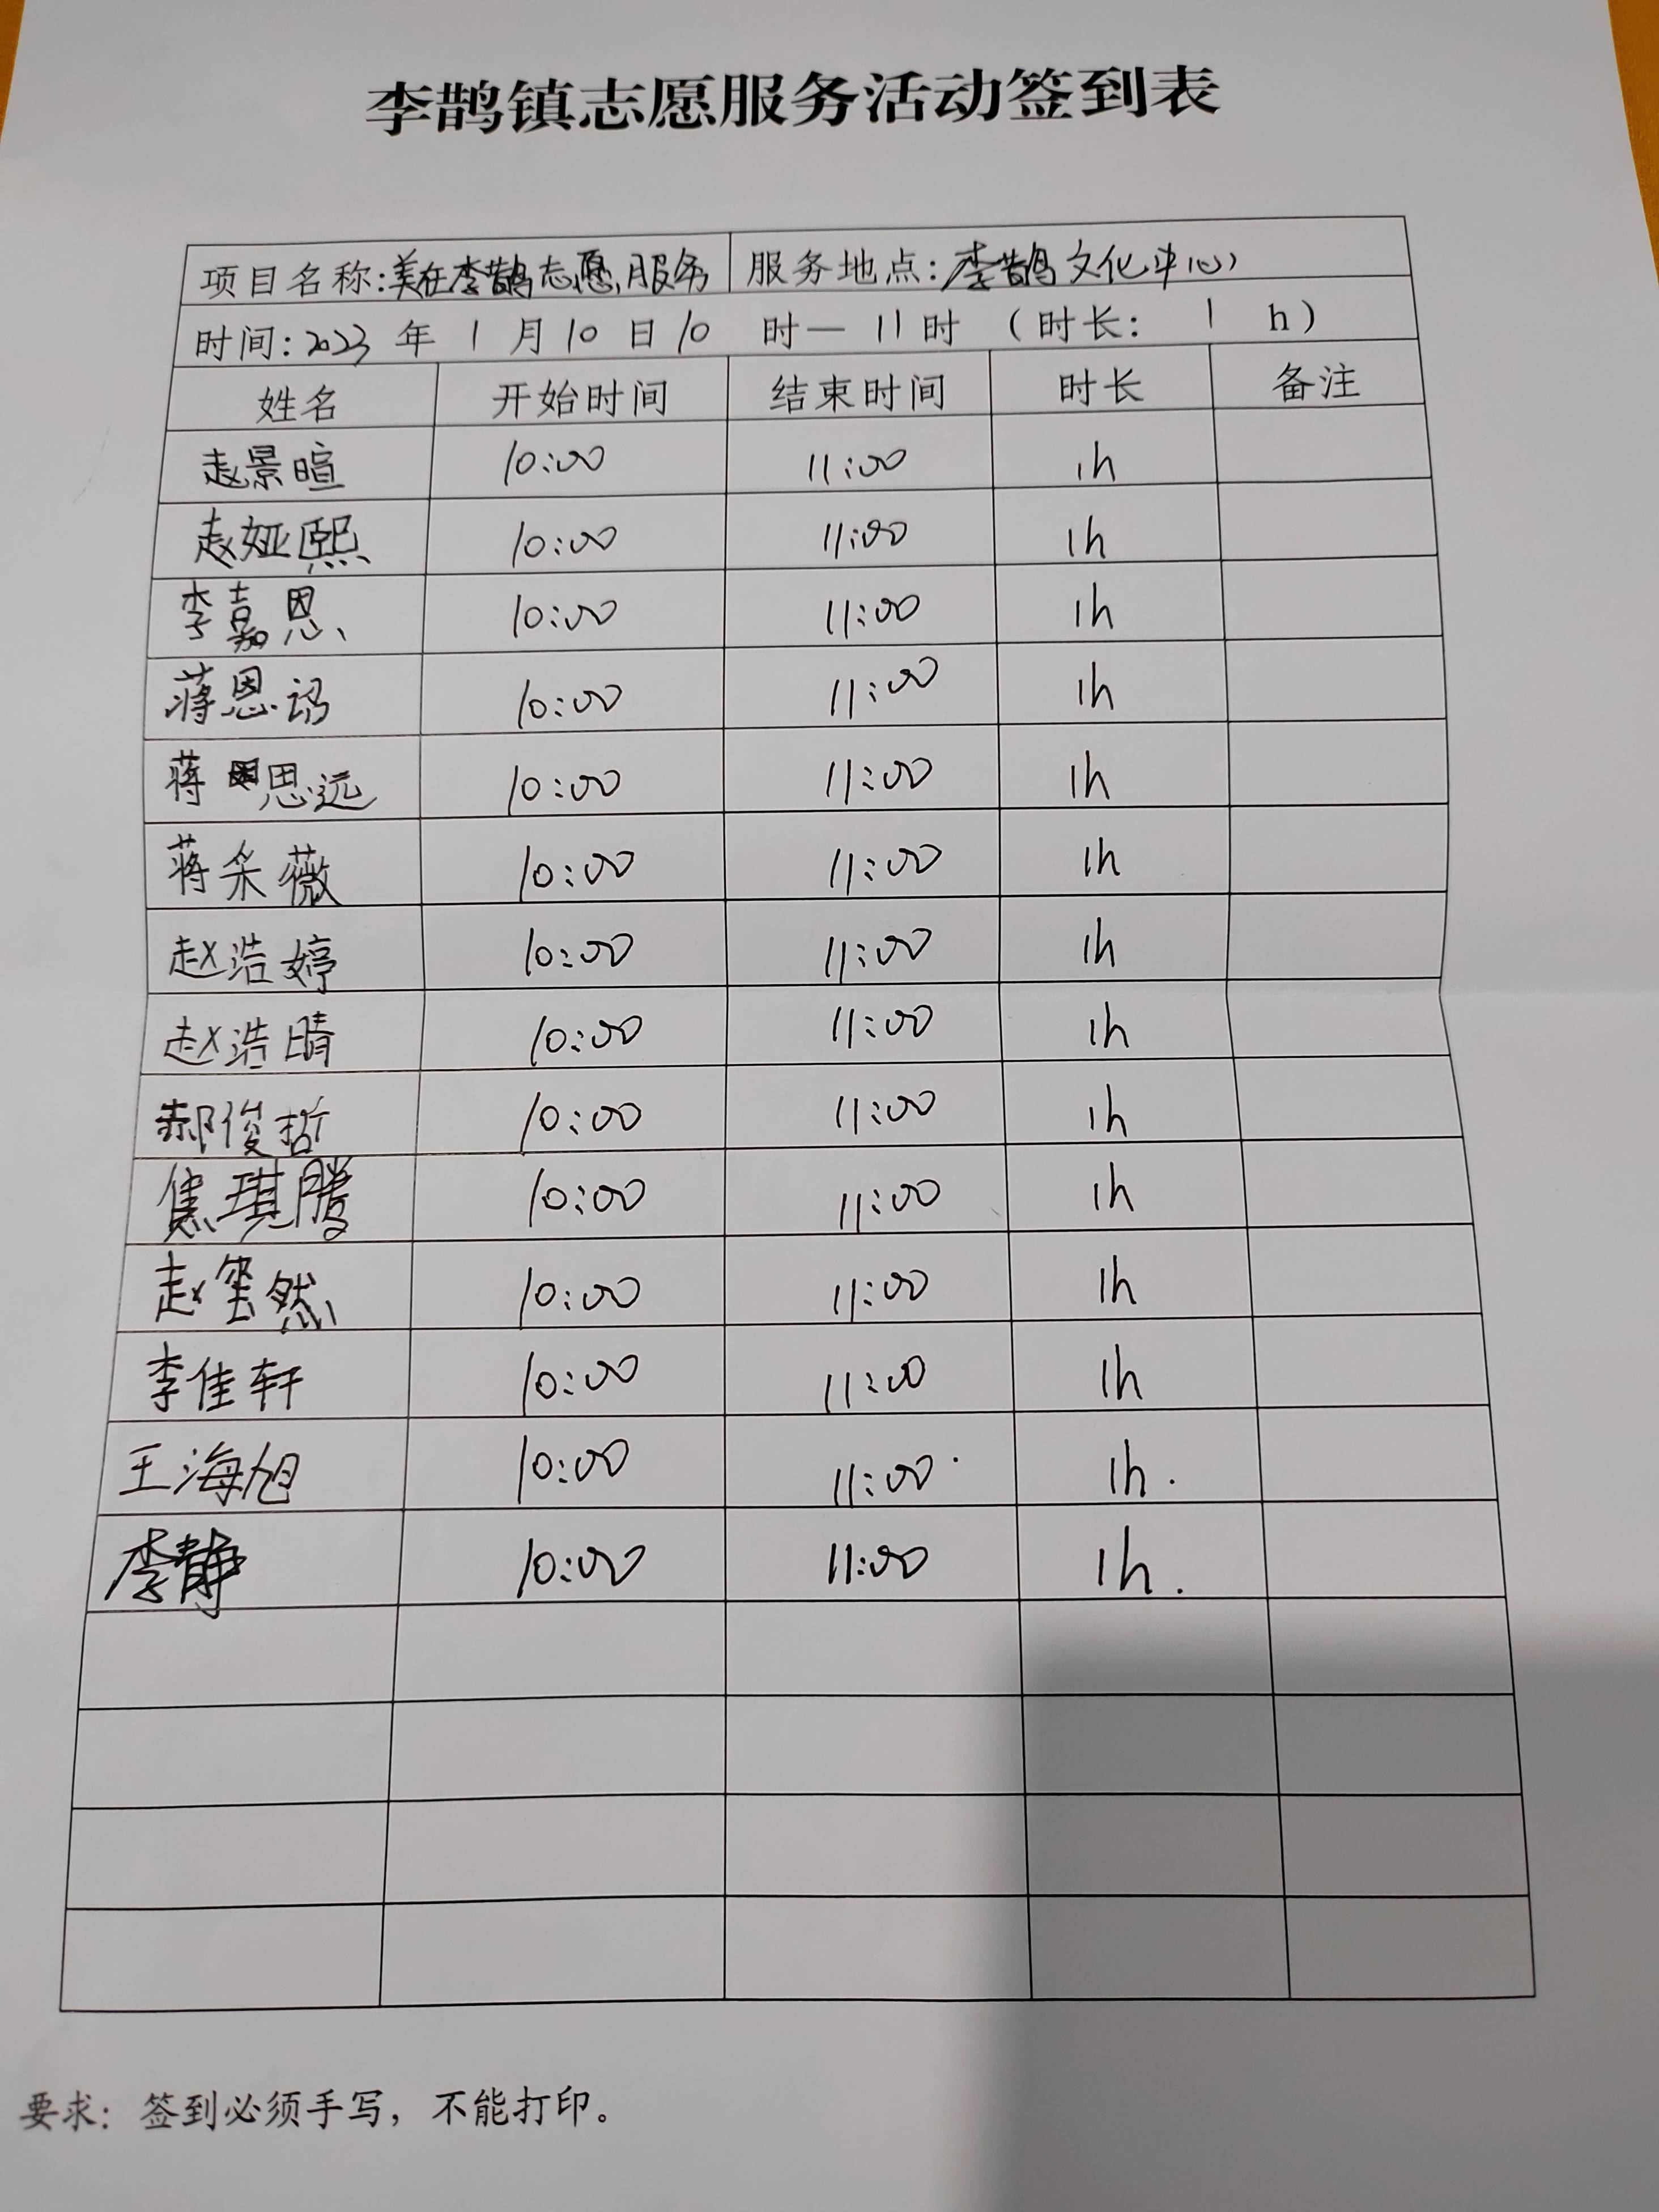 李鹊镇志愿服务活动签到表
项目名称:美在李鹊志愿服务 服务地点:李鹊文化中心
时间:2023 年 1 月 10 日 10 时— 11时 (时长: 1 h)
姓名 开始时间 结束时间 时长 备注
赵景暄 10:00 11:00 1h
赵娅熙 10:00 11:00 1h
李嘉恩 10:00 11:00 1h
蒋恩 10:00 11:00 1h
蒋思远 10:00 11:00 1h
蒋采薇 10:00 11:00 1h
赵浩婷 10:00 11:00 1h
赵浩晴 10:00 11:00 1h
郝俊哲 10:00 11:00 1h
焦琪腾 10:00 11:00 1h
赵然 10:00 11:00 1h
李佳轩 10:00 11:00 1h
王海旭 10:00 11:00 1h.
李静 10:00 11:00 1h.
要求: 签到必须手写, 不能打印。